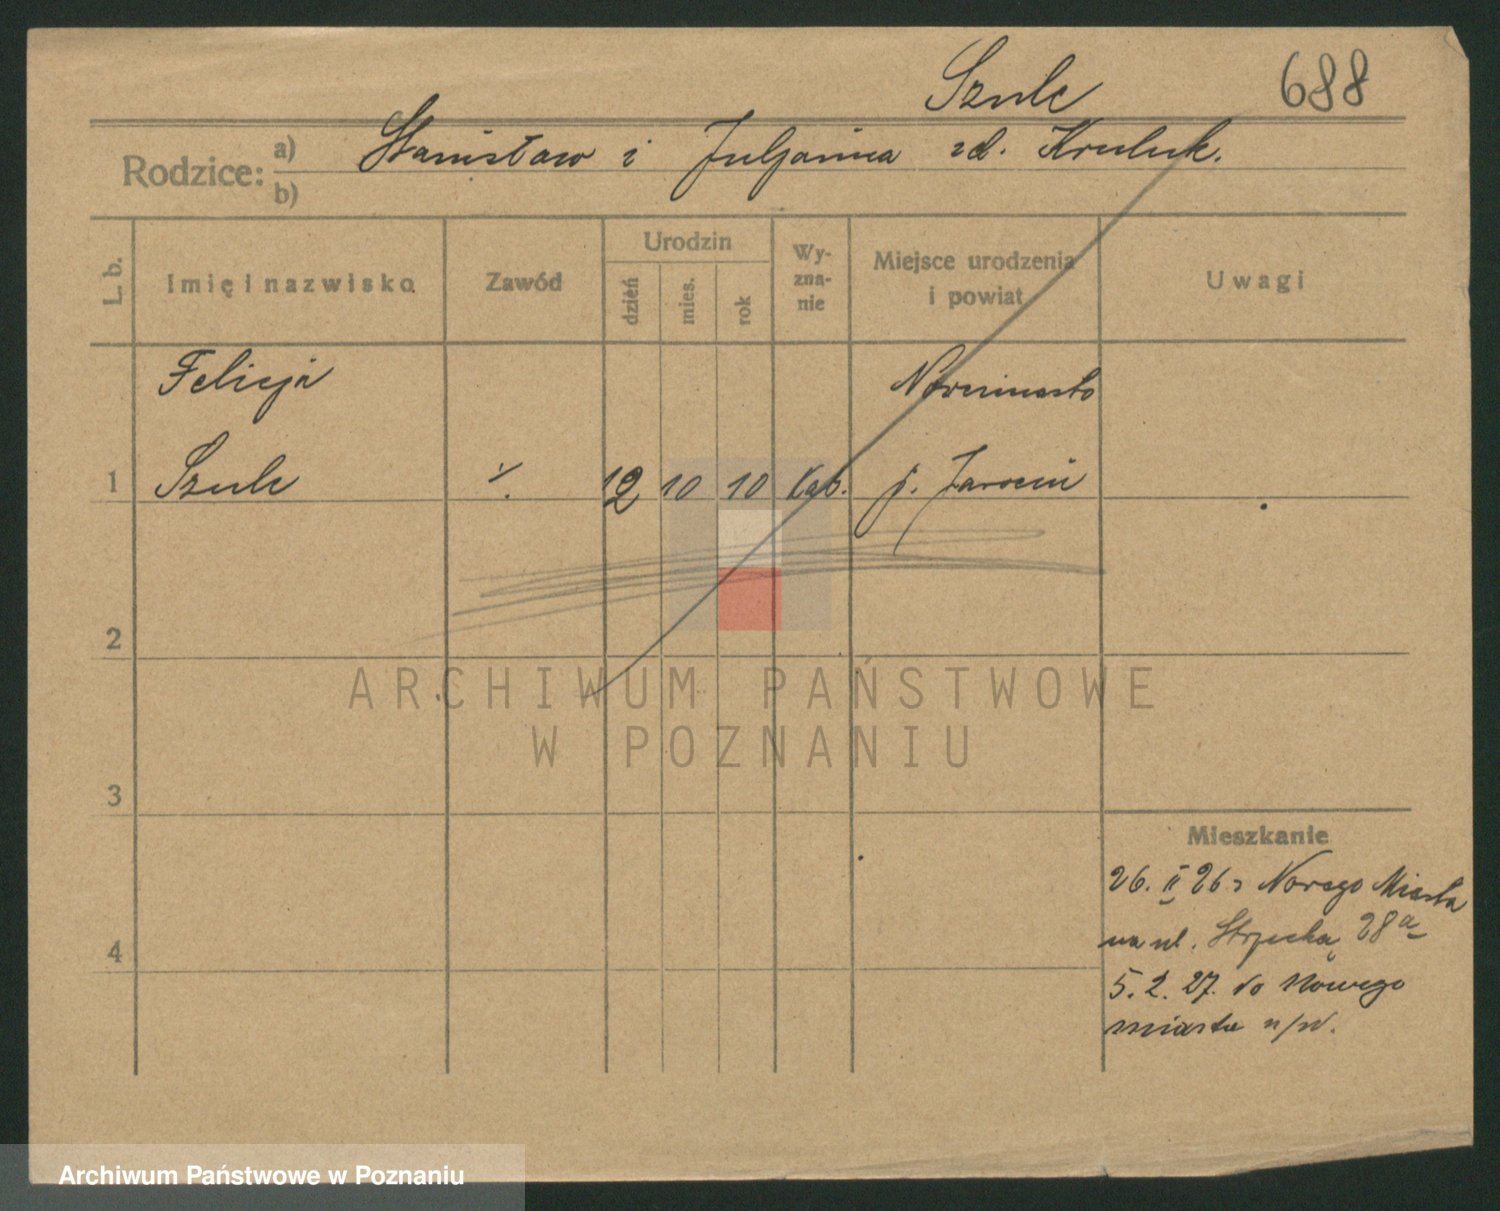 Szulc 688
Rodzice: a) Stanisław i Juljanna zd. Kruluk.
b)
L. b. Imię i nazwisko Zawód Urodzin dzień mies. rok Wyzna-nie Miejsce urodzenia i powiat Uwagi
Felicja Noweminasto
1 Szulc ./. 12 10 10 Kat. p. Jarocin
2
ARCHIWUM PAŃSTWOWE
W POZNANIU
3
Mieszkanie
26. II 26 z Nowego Miasta
4
na ul. 28a
5. 2. 27. do Nowego
miasta n/W.
Archiwum Państwowe w Poznaniu